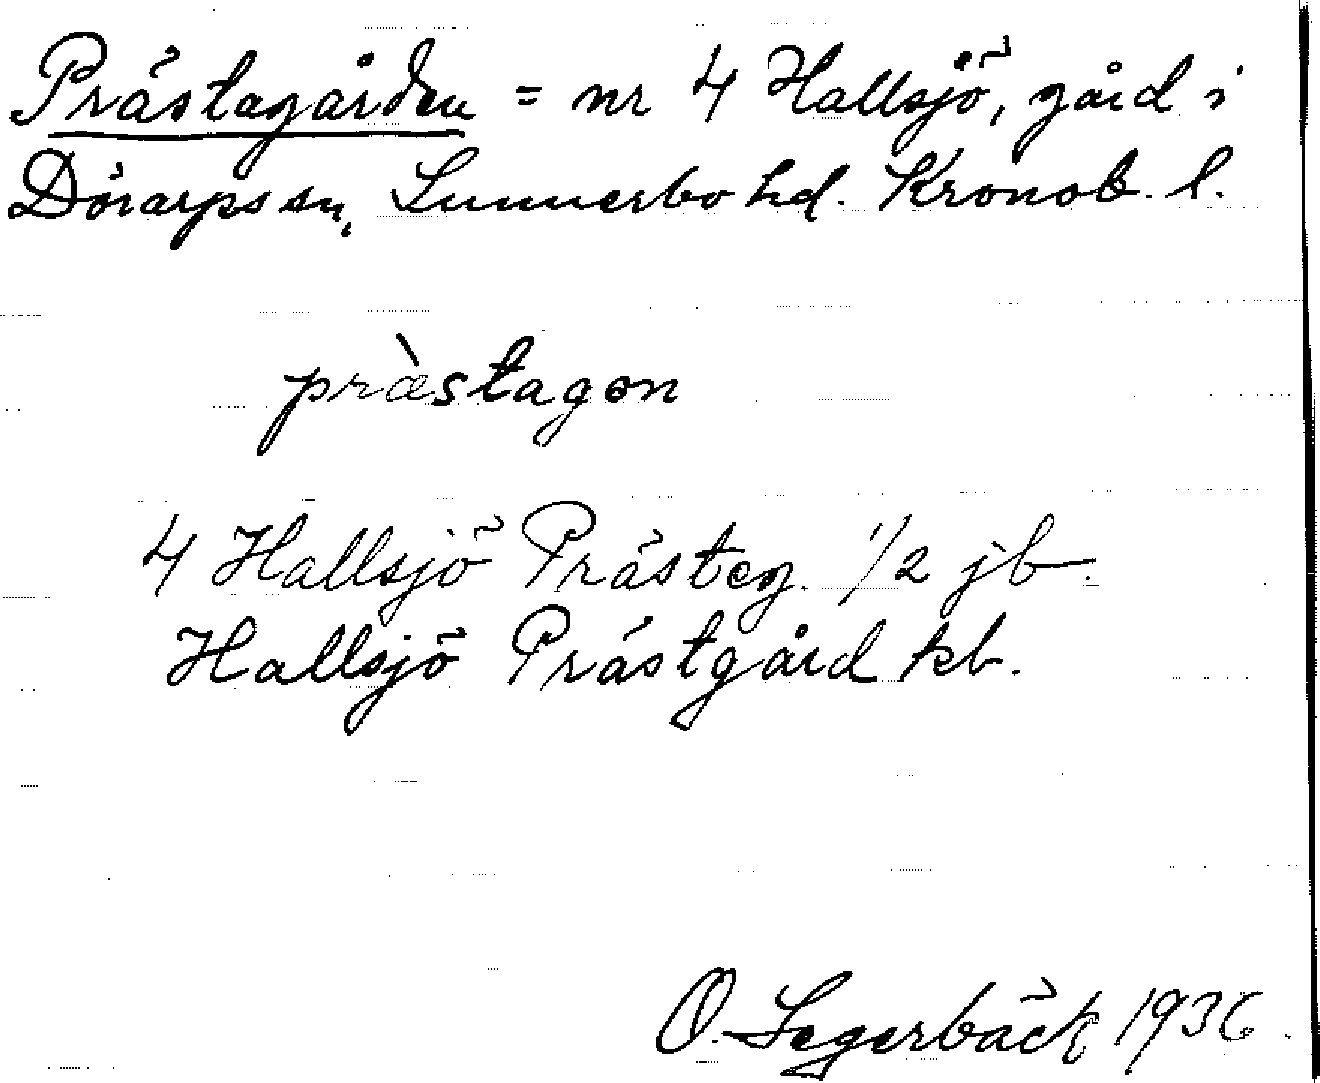 Prästagården = nr 4 Hallsjö, gård i
Dörarps sn, Sunnerbo hd. Kronob. l.
præ̀stagɵn
4 Hallsjö Prästeg. 1/2 jb.
Hallsjö Prästgård kb.
O. Segerbäck 1936.